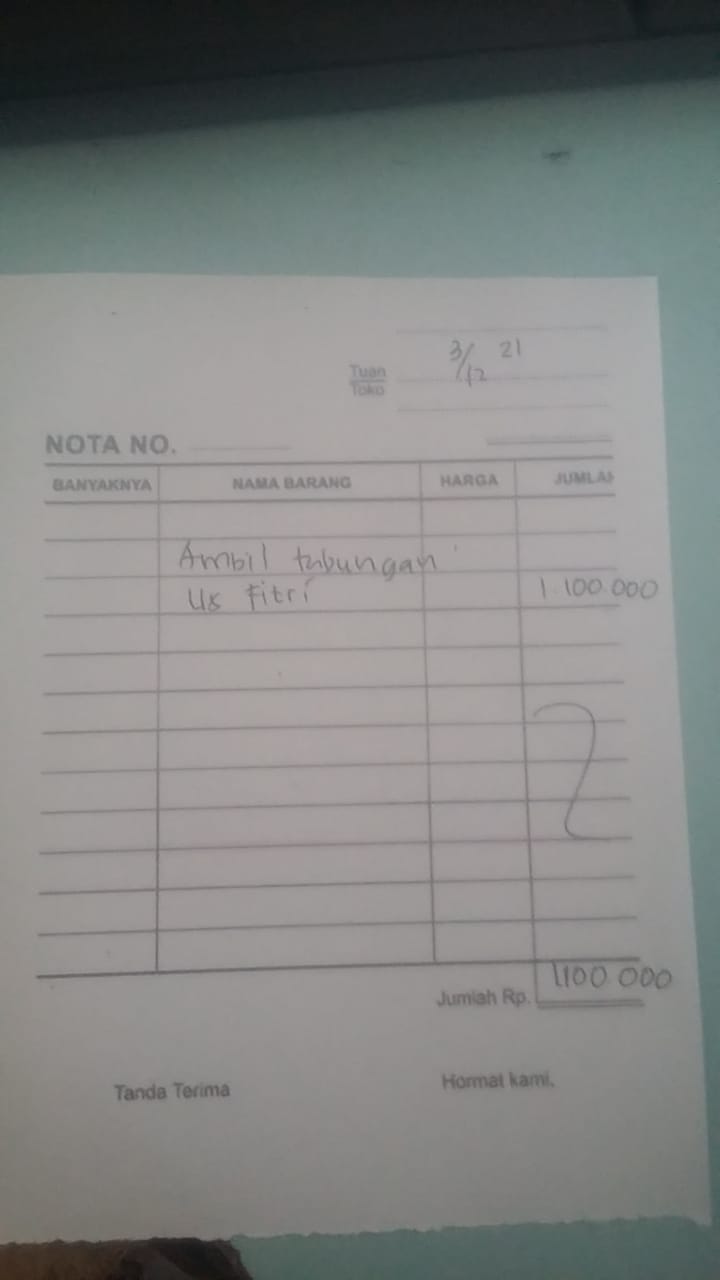 3/12 21
Tuan
Toko
NOTA NO.
BANYAKNYA NAMA BARANG HARGA JUMLAH
Ambil tabungan
Us Fitri 1.100.000
Jumlah Rp. 1100 000
Tanda Terima Hormat kami,